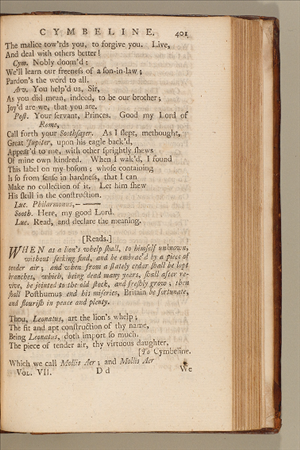 CYMBELINE. 401
The malice tow'rds you, to forgive you. Live,
And deal with others better!
Cym. Nobly doom'd:
We'll learn our freeness of a son-in-law;
Pardon's the word to all.
Arv. You help'd us, Sir,
As you did mean, indeed, to be our brother;
Joy'd are we, that you are.
Post. Your servant, Princes. Good my Lord of
Rome,
Call forth your Soothsayer. As I slept, methought,
Great Jupiter, upon his eagle back'd,
Appear'd to me, with other sprightly shews
Of mine own kindred. When I wak'd, I found
This label on my bosom; whose containing
Is so from sense in hardness, that I can
Make no collection of it. Let him shew
His skill in the construction.
Luc. Philarmonus, —
Sooth. Here, my good Lord.
Luc. Read, and declare the meaning.
[Reads.]
WHEN as a lion's whelp shall, to himself unknown,
without seeking find, and be embrac'd by a piece of
tender air; and when from a stately cedar shall be lopt
branches, which, being dead many years, shall after re-
vive, be jointed to the old stock, and freshly grow; then
shall Posthumus end his miseries, Britain be fortunate,
and flourish in peace and plenty.
Thou, Leonatus, art the lion's whelp;
The fit and apt construction of thy name,
Being Leonatus, doth import so much.
The piece of tender air, thy virtuous daughter,
[To Cymbeline.
Which we call Mollis Aer; and Mollis Aer
VOL. VII. D d We